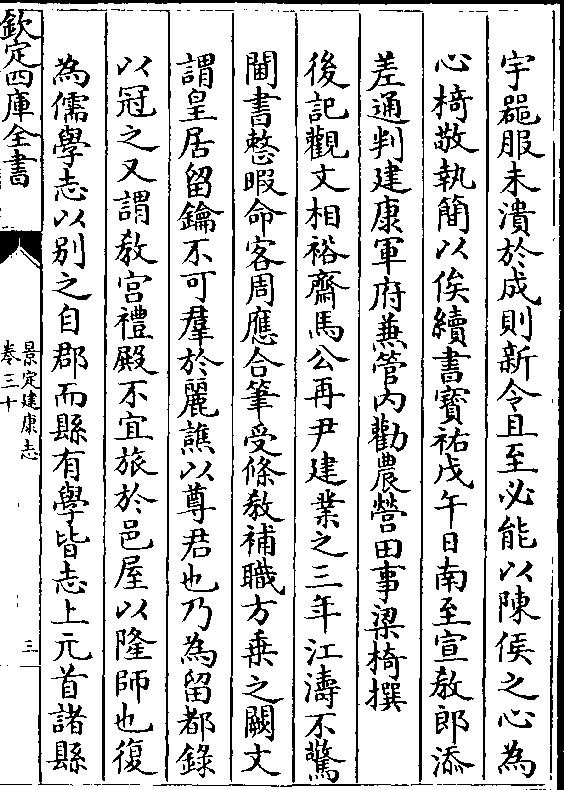 宇噐服未潰於成則新令且至必能以陳侯之心為
心椅敬執簡以俟續書寳祐戊午日南至宣敎郎添
差通判建康軍府兼管内勸農營田事梁椅撰
後記觀文相裕齋馬公再尹建業之三年江濤不驚
閫書整暇命客周應合筆受條敎補職方乗之闕文
謂皇居留鑰不可羣於麗譙以尊君也乃為留都錄
以冠之又謂敎宫禮殿不宜旅於邑屋以隆師也復
為儒學志以别之自郡而縣有學皆志上元首諸縣
欽定四庫全書
景定建康志
卷三十
三